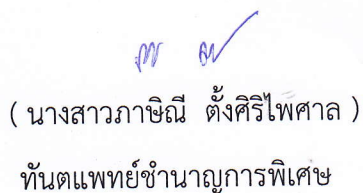 ( นางสาวภาษิณี ตั้งศิริไพศาล )
ทันตแพทย์ชำนาญการพิเศษ